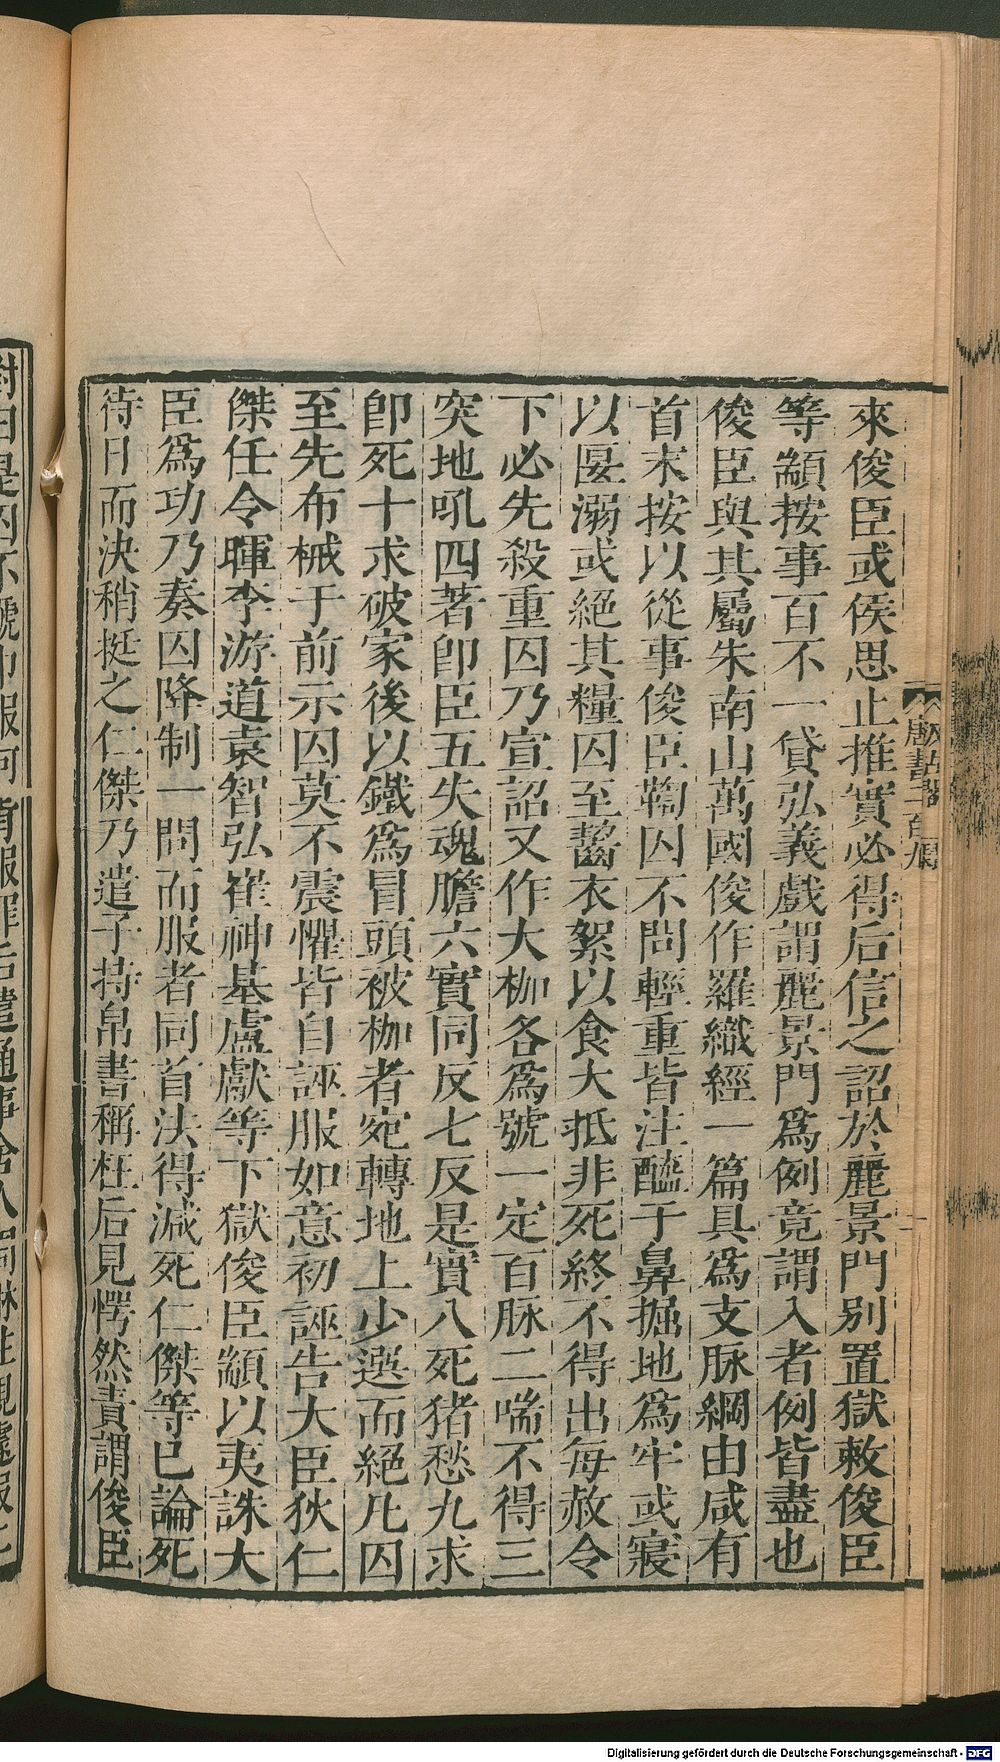 來俊臣或侯思止推實必得后信之詔於麗景門别置獄敕俊臣
等顓按事百不一貸弘義戲謂麗景門爲例竟謂入者例皆盡也
俊臣與其屬朱南山萬國俊作羅織經一篇具爲支脉綱由咸有
首末按以從事俊臣鞫囚不問輕重皆注醯于鼻掘地爲牢或寢
以匽溺或絕其糧囚至齧衣絮以食大抵非死終不得出每赦令
下必先殺重囚乃宣詔又作大枷各爲號一定百脉二喘不得三
突地吼四著卽臣五失魂膽六實同反七反是實八死猪愁九求
卽死十求破家後以鐵爲冒頭被枷者宛轉地上少選而絕凡囚
至先布械于前示囚莫不震懼皆自誣服如意初誣告大臣狄仁
傑任令暉李游道袁智弘崔神基盧獻等下獄俊臣顓以夷誅大
臣爲功乃奏囚降制一問而服者同首法得減死仁傑等已論死
待日而決稍挺之仁傑乃遣子持帛書稱枉后見愕然責謂俊臣
Digitalisierung gefördert durch die Deutsche Forschungsgemeinschaft - DFG